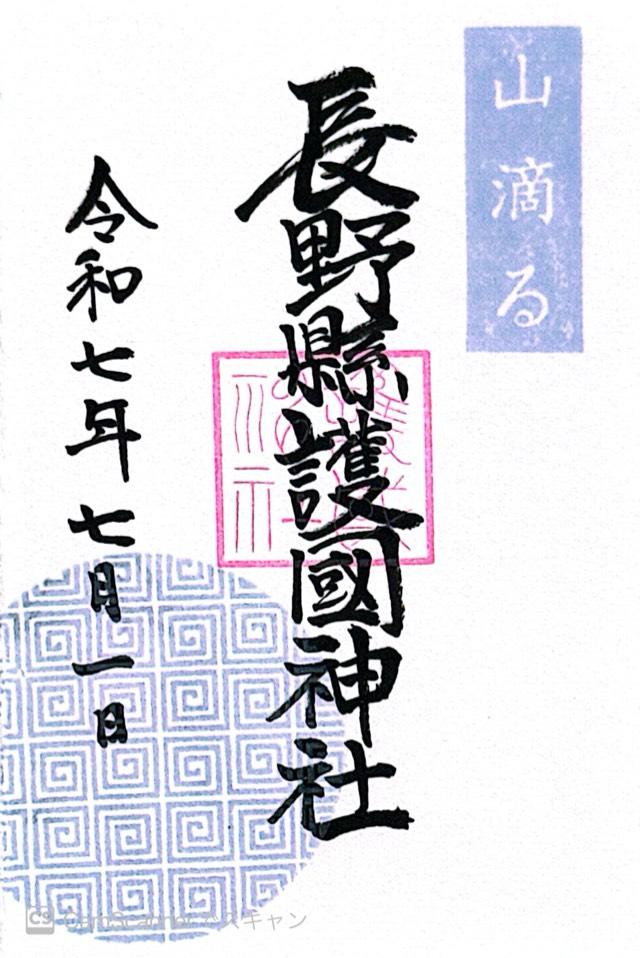 山滴る
長野縣護國神社
令和七年七月一日
CS CamScanner でスキャン